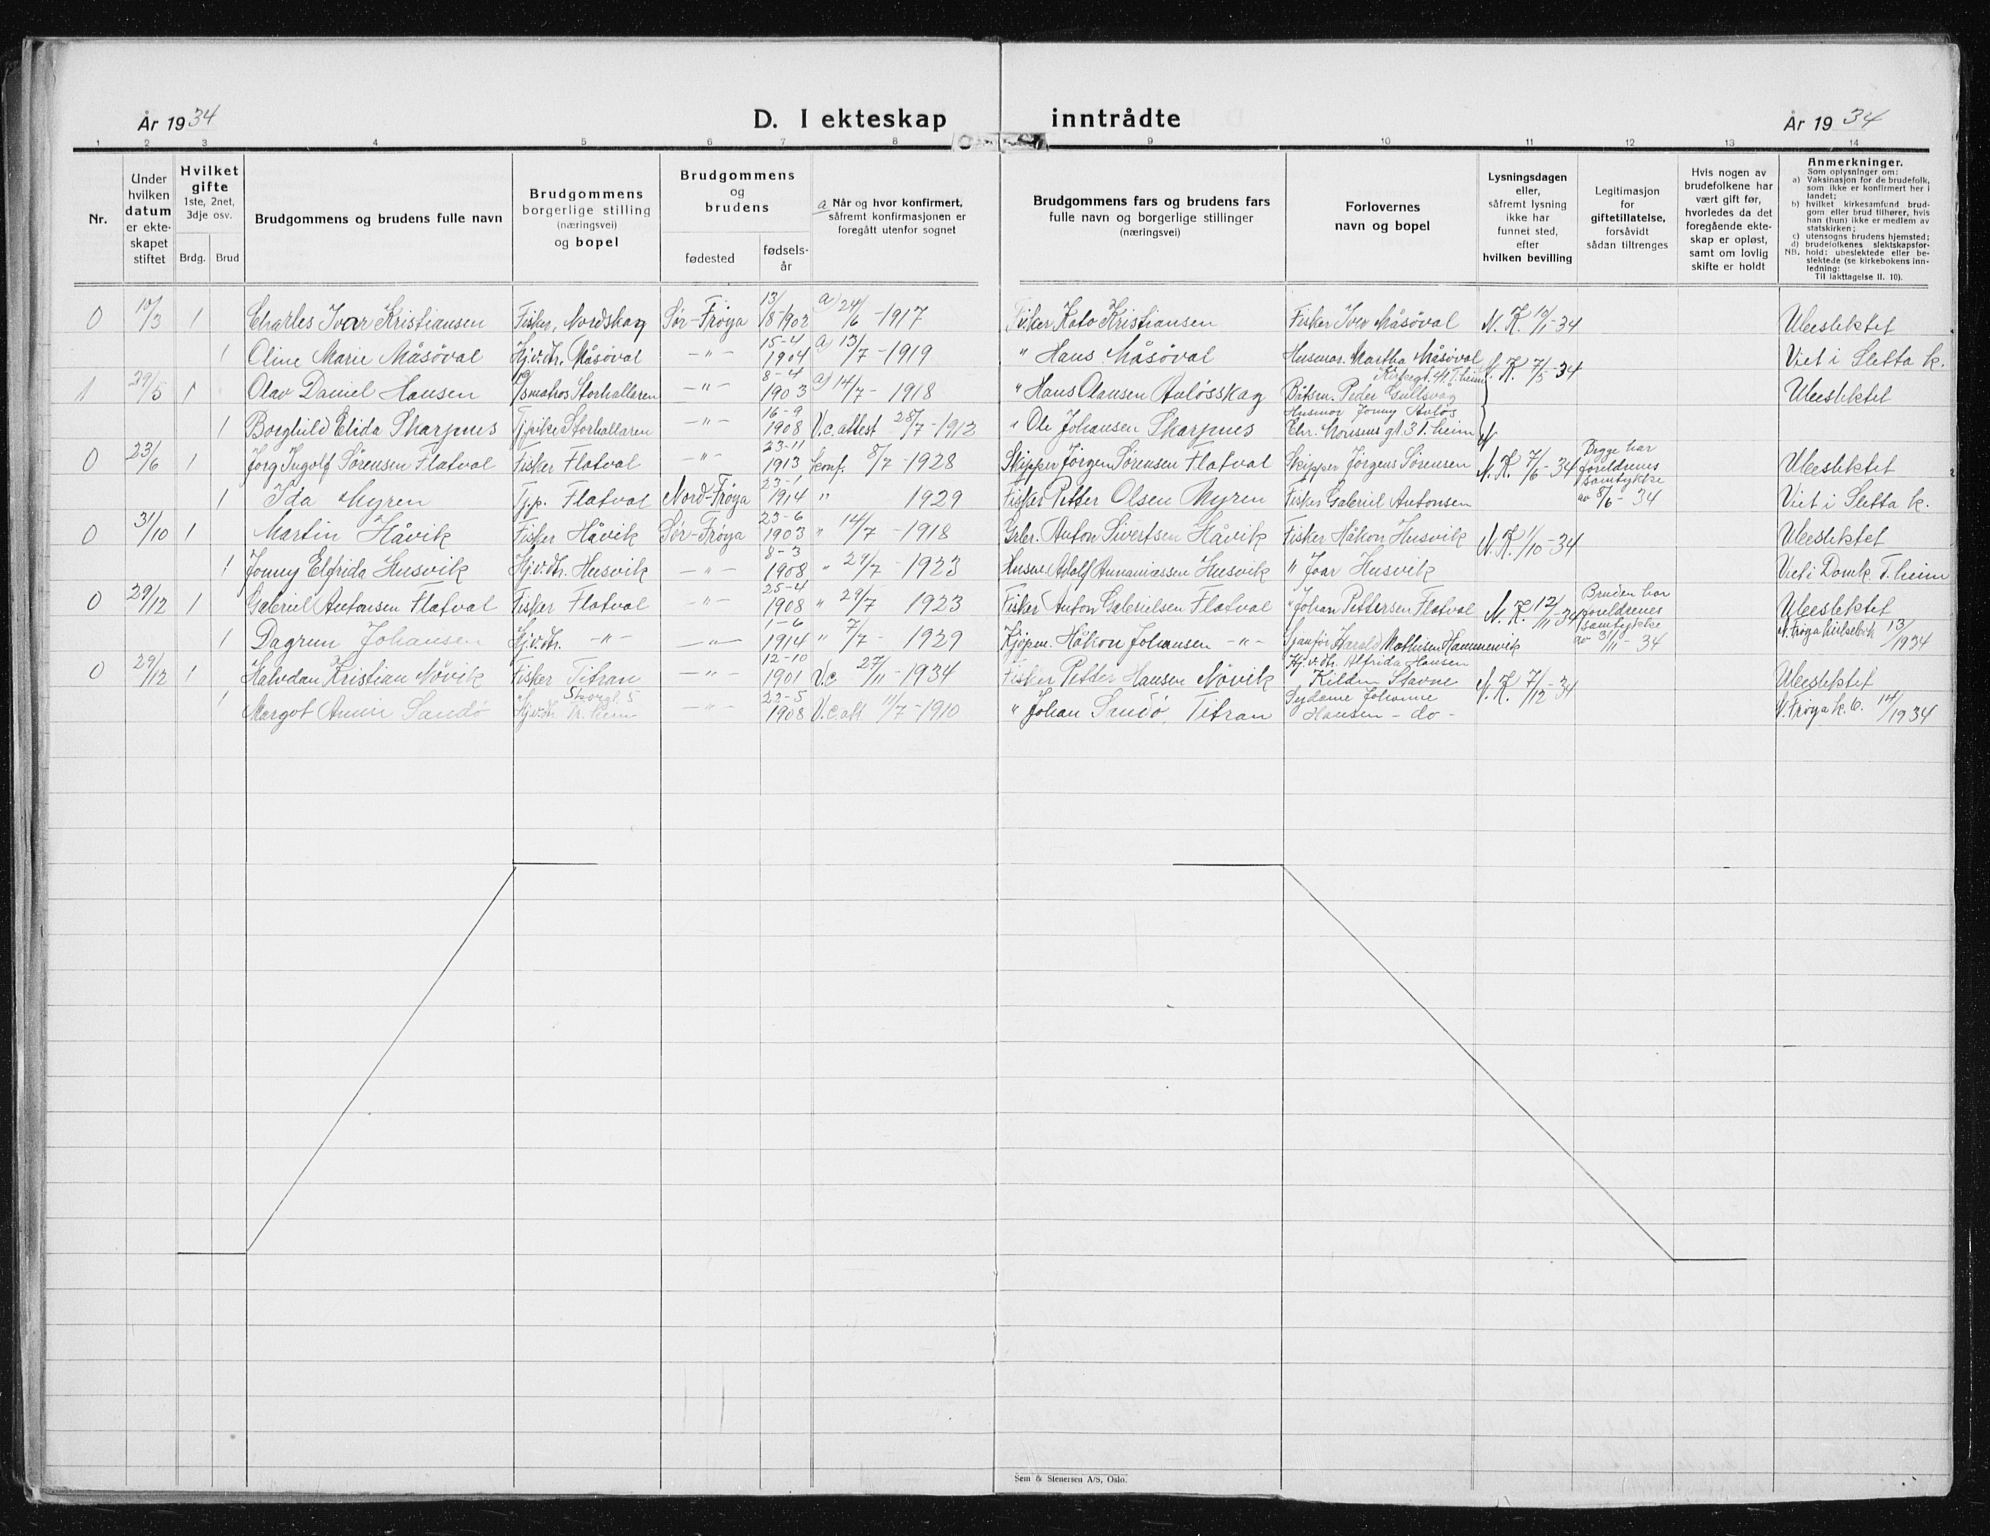 År 1934
D. I ekteskap inntrådte
År 1934
1 2 3 4 5 6 7 8 9 10 11 12 13 14
Nr.
Under hvilken datum er ekteskapet stiftet
Hvilket gifte 1ste, 2net, 3dje osv.
Brdg. Brud
Brudgommens og brudens fulle navn
Brudgommens borgerlige stilling (næringsvei) og bopel
Brudgommens og brudens
fødested
fødselsår
a Når og hvor konfirmert, såfremt konfirmasjonen er foregått utenfor sognet
Brudgommens fars og brudens fars fulle navn og borgerlige stillinger (næringsvei)
Forlovernes navn og bopel
Lysningsdagen eller, såfremt lysning ikke har funnet sted, efter hvilken bevilling
Legitimasjon for giftetillatelse, forsåvidt sådan tiltrenges
Hvis nogen av brudefolkene har vært gift før, hvorledes da det foregående ekteskap er opløst, samt om lovlig skifte er holdt
Anmerkninger.
Som oplysninger om:
a) Vaksinasjon for de brudefolk, som ikke er konfirmert her i landet;
b) hvilket kirkesamfund brudgom eller brud tilhører, hvis han (hun) ikke er medlem av statskirken;
c) utensogns brudens hjemsted;
d) brudefolkenes slektskapsforhold: ubeslektede eller beslektede (se kirkebokens innledning:
NB. Til iakttagelse II. 10).
0 10/3 1 Charles Ivar Kristiansen Fisker, Nordskag Sør-Frøya 13/8 1902 a) 24/6 - 1917 Fisker Kato Kristiansen Fisker Iver Måsøval N. K. -34 Ubeslektet
1 Oline Marie Måsøval Hj.v.dr. Måsøval -"- 15-4 1904 a) 13/7 - 1919 " Hans Måsøval Husmor Martha Måsøval Viet i Sletta k.
1 29/5 1 Olav Daniel Hansen Storhallaren -"- 8-4 1903 a) 14/7 - 1918 " Hans Olansen Avløsskag Båtsm. Peder Gullsvåg N. K. 7/5 -34 Ubeslektet
1 Borghild Elida Skarpnes Storhallaren -"- 16-9 1908 V.c. attest 28/7 - 1912 " Ole Johansen Skarpnes Husmor Jonny Avløs Chr. gt 31. heim
0 23/6 1 Jørg Ingolf Sørensen Flatval Fisker Flatval -"- 23-11 1913 konf. 8/7 - 1928 Skipper Jørgen Sørensen Flatval Skipper Jørgens Sørensen N. K. 7/6 -34 Begge har foreldrenes samtykke av 8/6 - 34 Ubeslektet
1 Ida Myren Tj.p. Flatval Nord-Frøya 23-1 1914 " 1929 Fisker Petter Olsen Myren Fisker Gabriel Antonsen Viet i Sletta k.
0 31/10 1 Martin Håvik Fisker Håvik Sør-Frøya 23-6 1903 " 14/7 - 1918 Grbr. Anton Sivertsen Håvik Fisker Håkon Husvik N. K. 1/10 -34 Ubeslektet
1 Jonny Elfrida Husvik Hj.v.dr. Husvik -"- 8-3 1908 " 29/7 - 1923 Adolf Annaniassen Husvik " Joar Husvik Viet i Domk. T.heim
0 29/12 1 Gabriel Antonsen Flatval Fisker Flatval -"- 25-4 1908 " 29/7 - 1923 Fisker Anton Gabrielsen Flatval " Johan Pettersen Flatval N. K. 12/11 -34 Bruden har foreldrenes samtykke av 3/11 - 34 Ubeslektet
1 Dagrun Johansen Hj.v.dr. -"- -"- 1-6 1914 " 7/7 - 1929 Kjøpm. Håkon Johansen -"- Harald Mathisen Hammervik N. Frøya 13/1934
0 29/12 1 Halvdan Kristian Nøvik Fisker Titran -"- 12-10 1901 V.c. 27/11 - 1934 Fisker Petter Hansen Nøvik Hj.v.dr. Alfrida Hansen Kilden Stavne N. K. 7/12 -34 Ubeslektet
1 Margot Anna Sandø Hj.v.dr. Tr.heim -"- 22-5 1908 V.c. att 11/7 - 1910 " Johan Sandø, Titran Sydame Johanne Hansen - do - N. Frøya k. 6. 14/1934
Sem & Stenersen A/S, Oslo.